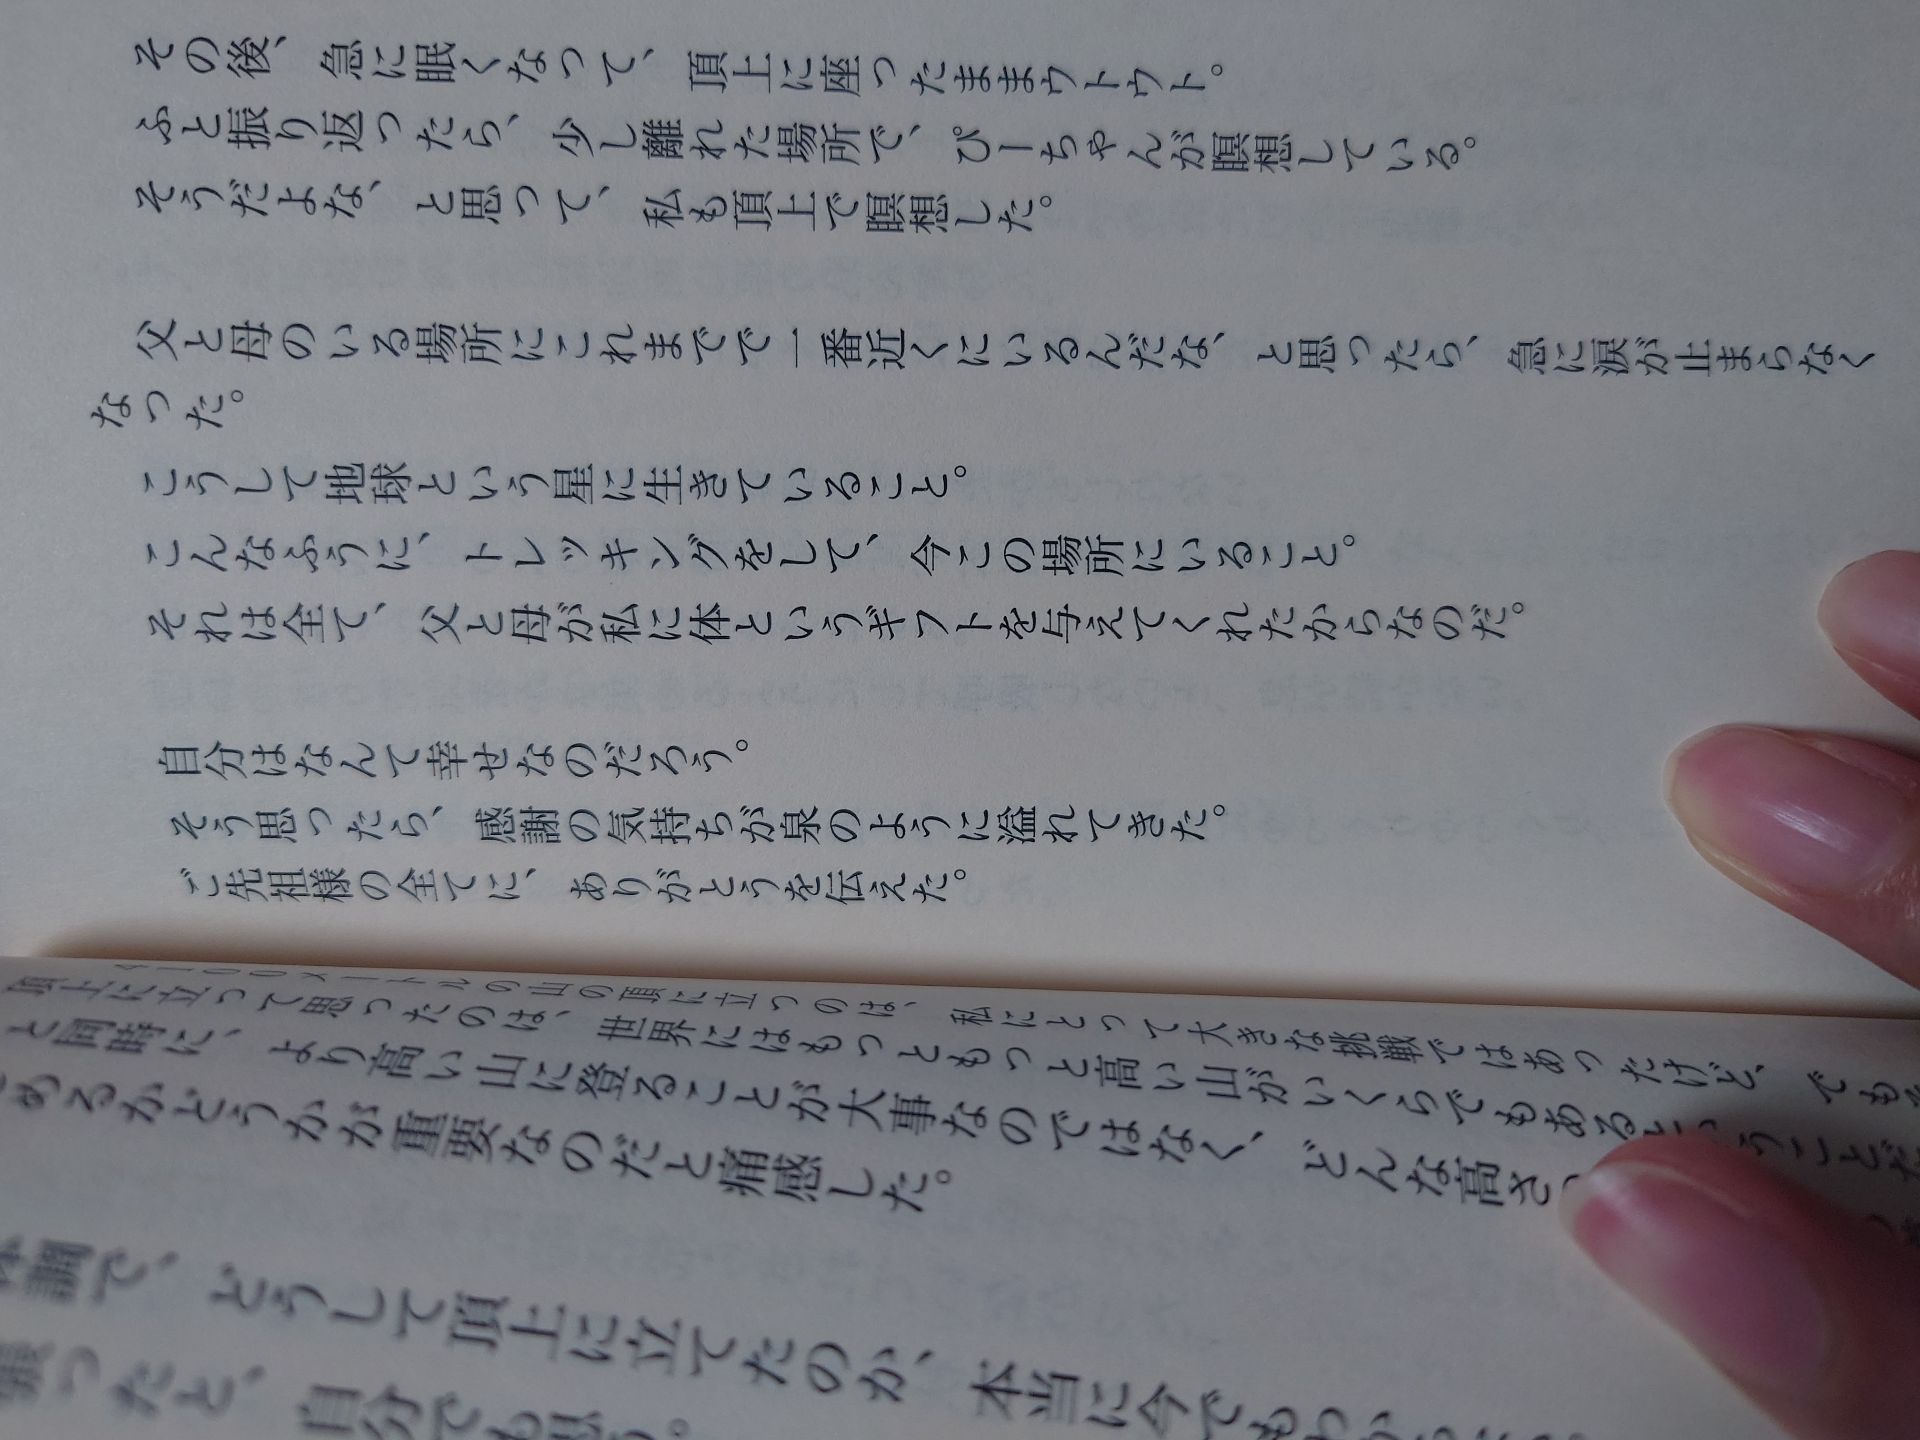 その後、急に眠くなって、頂上に座ったままウトウト。
ふと振り返ったら、少し離れた場所で、ぴーちゃんが瞑想している。
そうだよな、と思って、私も頂上で瞑想した。
父と母のいる場所にこれまでで一番近くにいるんだな、と思ったら、急に涙が止まらなく
なった。
こうして地球という星に生きていること。
こんなふうに、トレッキングをして、今この場所にいること。
それは全て、父と母が私に体というギフトを与えてくれたからなのだ。
自分はなんて幸せなのだろう。
そう思ったら、感謝の気持ちが泉のように溢れてきた。
ご先祖様の全てに、ありがとうを伝えた。
メートルの山の頂に立つのは、私にとって大きな挑戦ではあったけど、でもそ
頂上に立って思ったのは、世界にはもっともっと高い山がいくらでもあるということだ
と同時に、より高い山に登ることが大事なのではなく、どんな高さ
めるかどうかが重要なのだと痛感した。
調で、どうして頂上に立てたのか、本当に今でもわからない。
張ったと、自分でも思う。